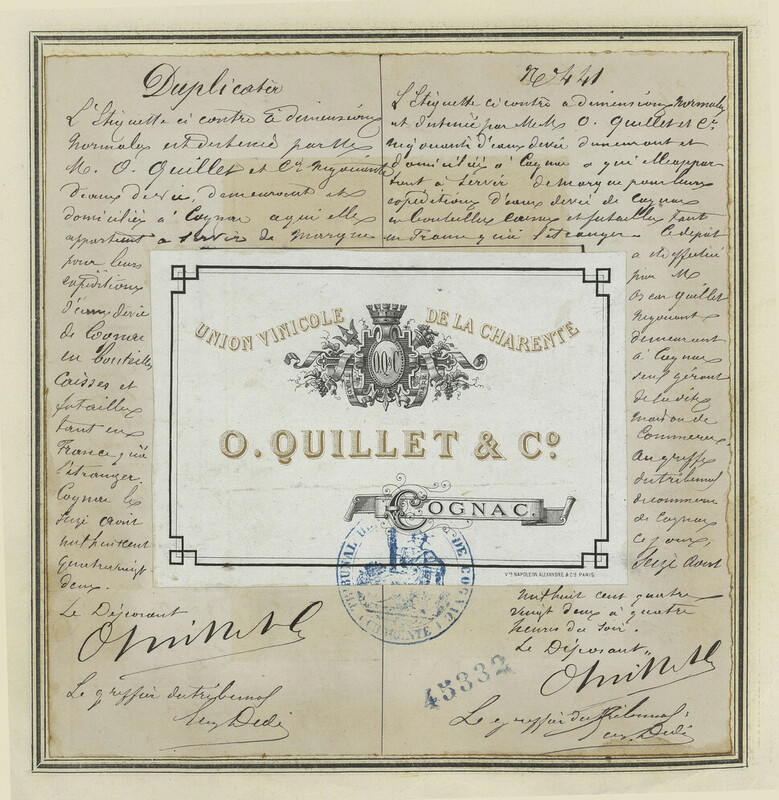 Duplicater
L'Etiquette ci contre à dimensions
Normales est destinée par MM
M. O. Quillet et Cie Négociants
d'eaux de vie, demeurant et
domiciliés à Cognac a qui elle
appartient a servir de Marque
pour leurs
expéditions
d'eaux de vie
de Cognac
en bouteilles
Caisses et
futailles
tant en
France qu'à
l'étranger.
Cognac le
Seize Août
mil huit cent
quatre vingt
deux.
Le Déposant
OQuillet & Cie
Le greffier du tribunal
No 441
L'Etiquette ci contre a dimensions Normales
est destinée par MM. O. Quillet et Cie
négociants d'eaux de vie demeurant et
domiciliés à Cognac a qui elle appar-
tient à Servir de marque pour leurs
expéditions d'eaux de vie de Cognac
en bouteilles caisses et futailles tant
en France qu'à l'étranger. Ce dépôt
a été effectué
par M
Oscar Quillet
Négociant
demeurant
à Cognac
seul gérant
de la dite
maison de
Commerce.
Au greffe
du tribunal
de commerce
de Cognac
ce jour,
Seize Août
mil huit cent quatre
vingt deux à quatre
heures du Soir.
Le Déposant
OQuillet & Cie
Le greffier du Tribunal
UNION VINICOLE DE LA CHARENTE
O. QUILLET & Co.
COGNAC.
Vve NAPOLEON ALEXANDRE & Cie PARIS
TRIBUNAL DE COGNAC
45332